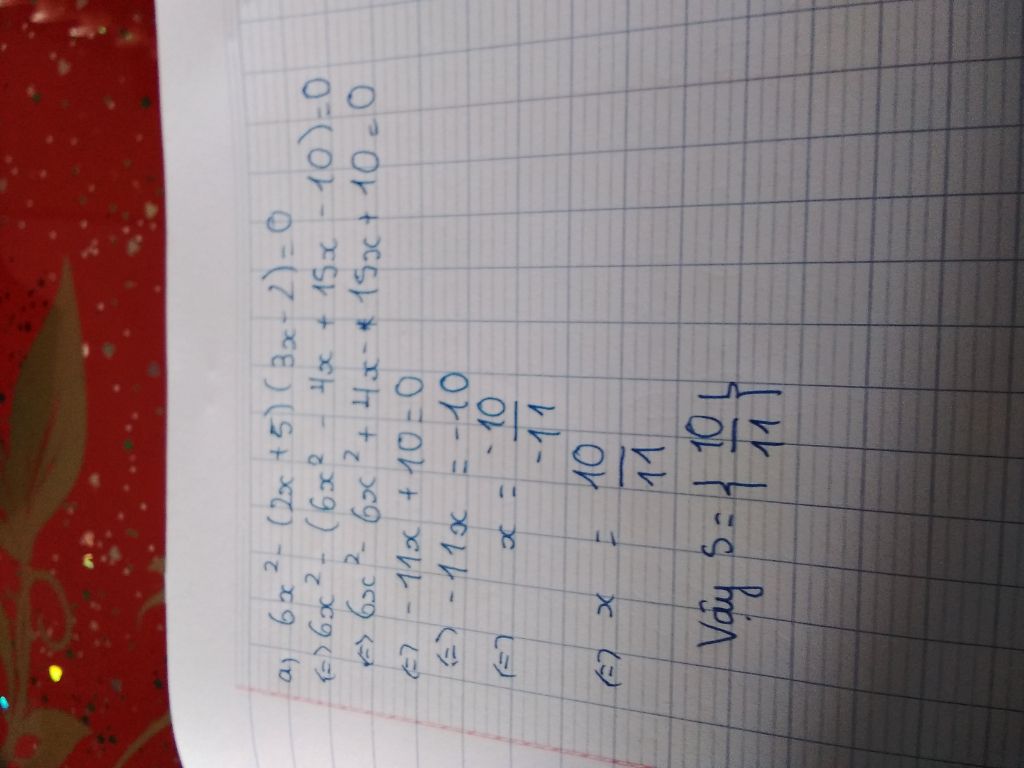 a) 6x² - (2x + 5)(3x - 2) = 0
(=) 6x² - (6x² - 4x + 15x - 10) = 0
(=) 6x² - 6x² + 4x - 15x + 10 = 0
(=) - 11x + 10 = 0
(=) - 11x = - 10
(=) x = -10/-11
(=) x = 10/11
Vậy S = { 10/11 }